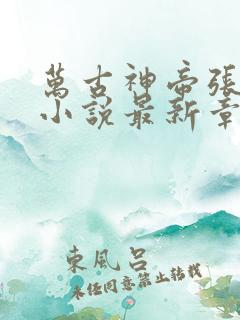 萬古神帝張
小說最新章
東風呂
未経同意禁止转载